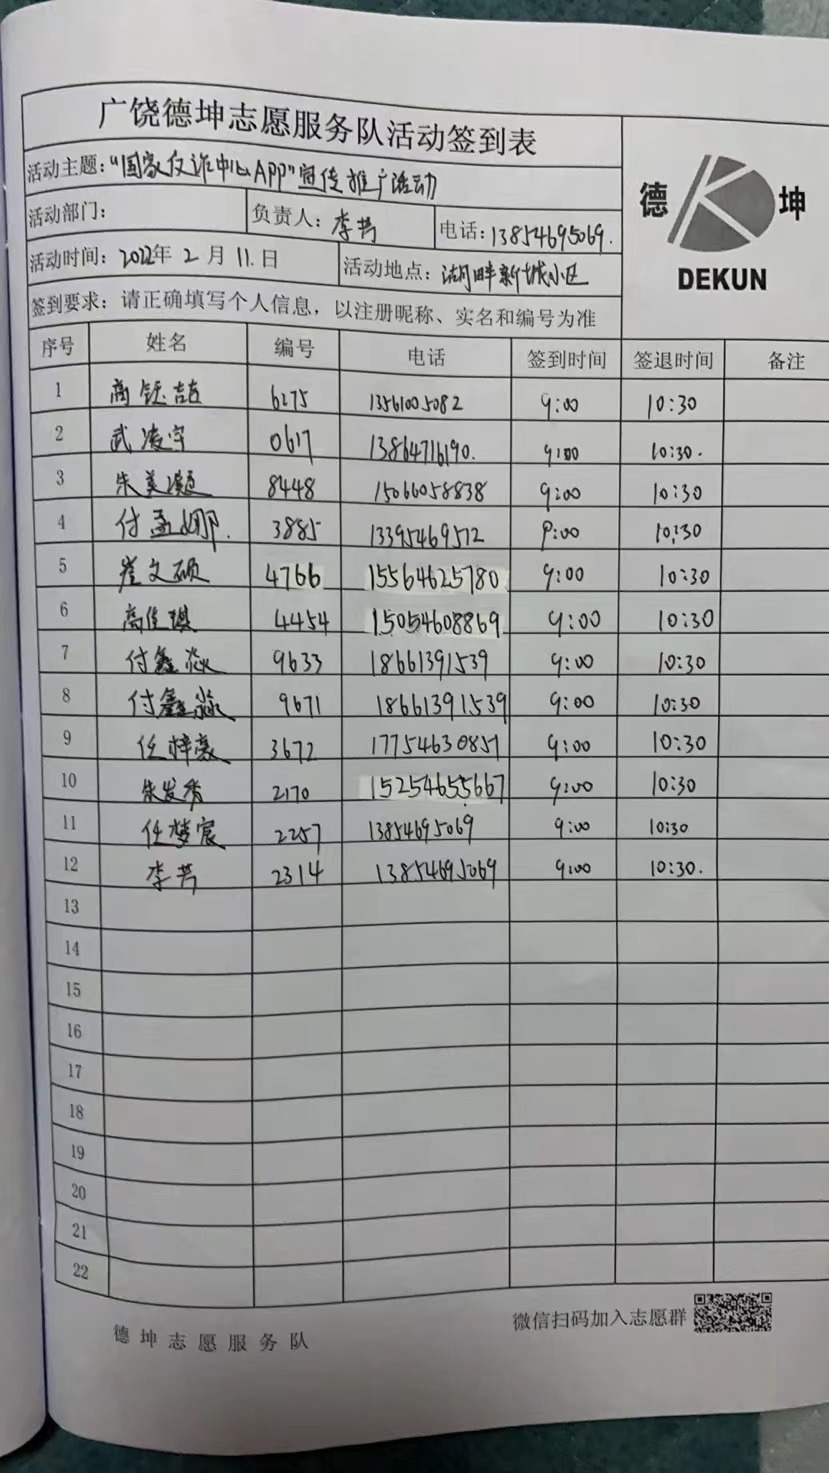 广饶德坤志愿服务队活动签到表
活动主题："国家反诈中心APP"宣传推广活动
活动部门： 负责人：李芳 电话：13854695069.
活动时间：2022年 2 月 11.日 活动地点：湖畔新城小区
签到要求：请正确填写个人信息，以注册昵称、实名和编号为准
德 坤
DEKUN
序号 姓名 编号 电话 签到时间 签退时间 备注
1 6275 13561005082 9:00 10:30
2 武凌宇 0617 13864716190. 9:00 10:30.
3 朱美凝 8448 15066058838 9:00 10:30
4 付孟娜. 3885 13395469512 9:00 10:30
5 崔文硕 4766 15564625780 9:00 10:30
6 高佳琪 4454 15054608869 9:00 10:30
7 付鑫焱 9633 18661391539 9:00 10:30
8 付鑫淼 9671 18661391539 9:00 10:30
9 任梓豪 3672 17754630851 9:00 10:30
10 朱发秀 2170 15254655667 9:00 10:30
11 任梦宸 2257 13854695069 9:00 10:30
12 李芳 2314 13854695069 9:00 10:30.
13
14
15
16
17
18
19
20
21
22
德坤志愿服务队 微信扫码加入志愿群